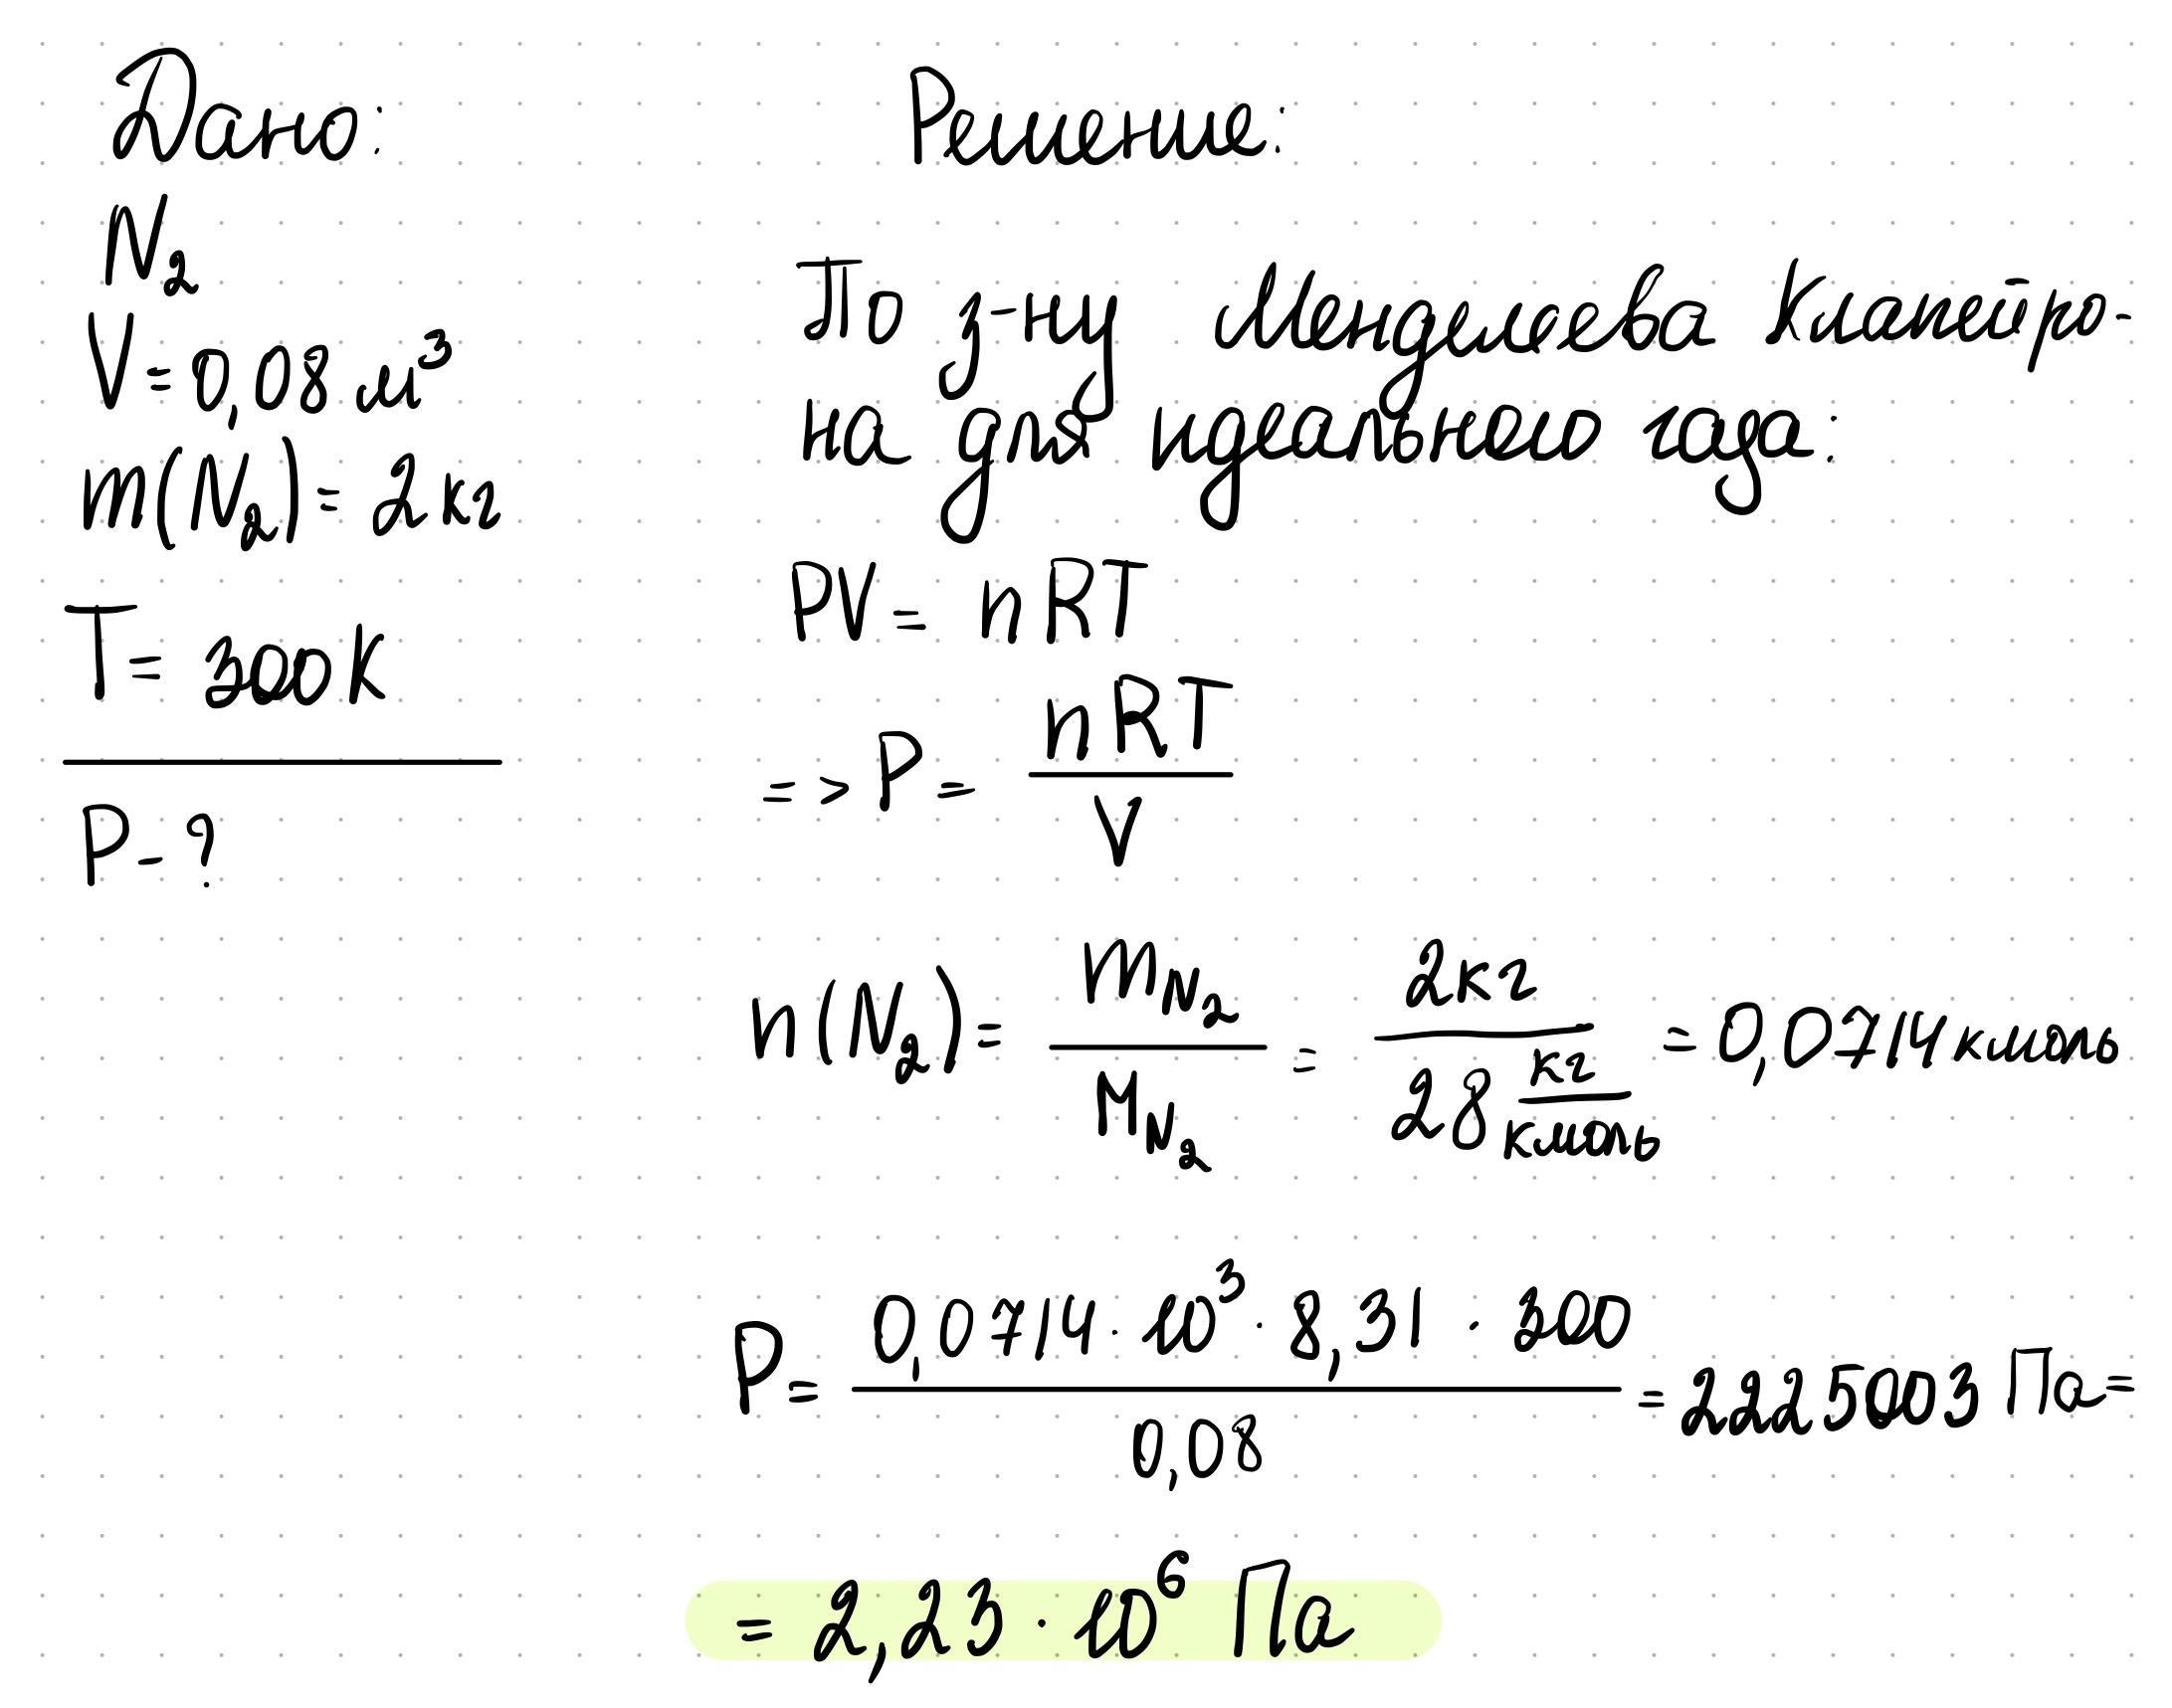 Дано:
N₂
V = 0,08 м³
m(N₂) = 2 кг
T = 300 K
P - ?
Решение:
По з-ну Менделеева Клапейро-
на для идеального газа:
PV = nRT
=> P = nRT / V
n(N₂) = m_N₂ / M_N₂ = 2кг / 28 кг/кмоль = 0,0714 кмоль
P = 0,0714 · 10³ · 8,31 · 300 / 0,08 = 2225003 Па =
= 2,23 · 10⁶ Па